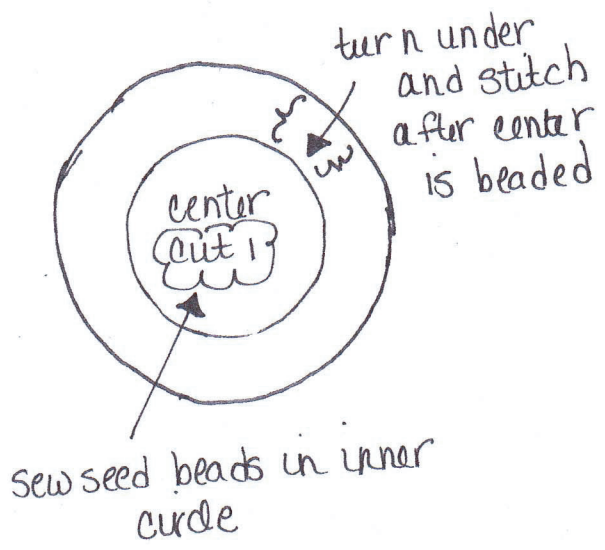 turn under
and stitch
after center
is beaded
center
cut 1
sew seed beads in inner
circle